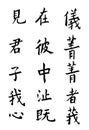 儀菁菁者莪
在彼中沚既
見君子我心